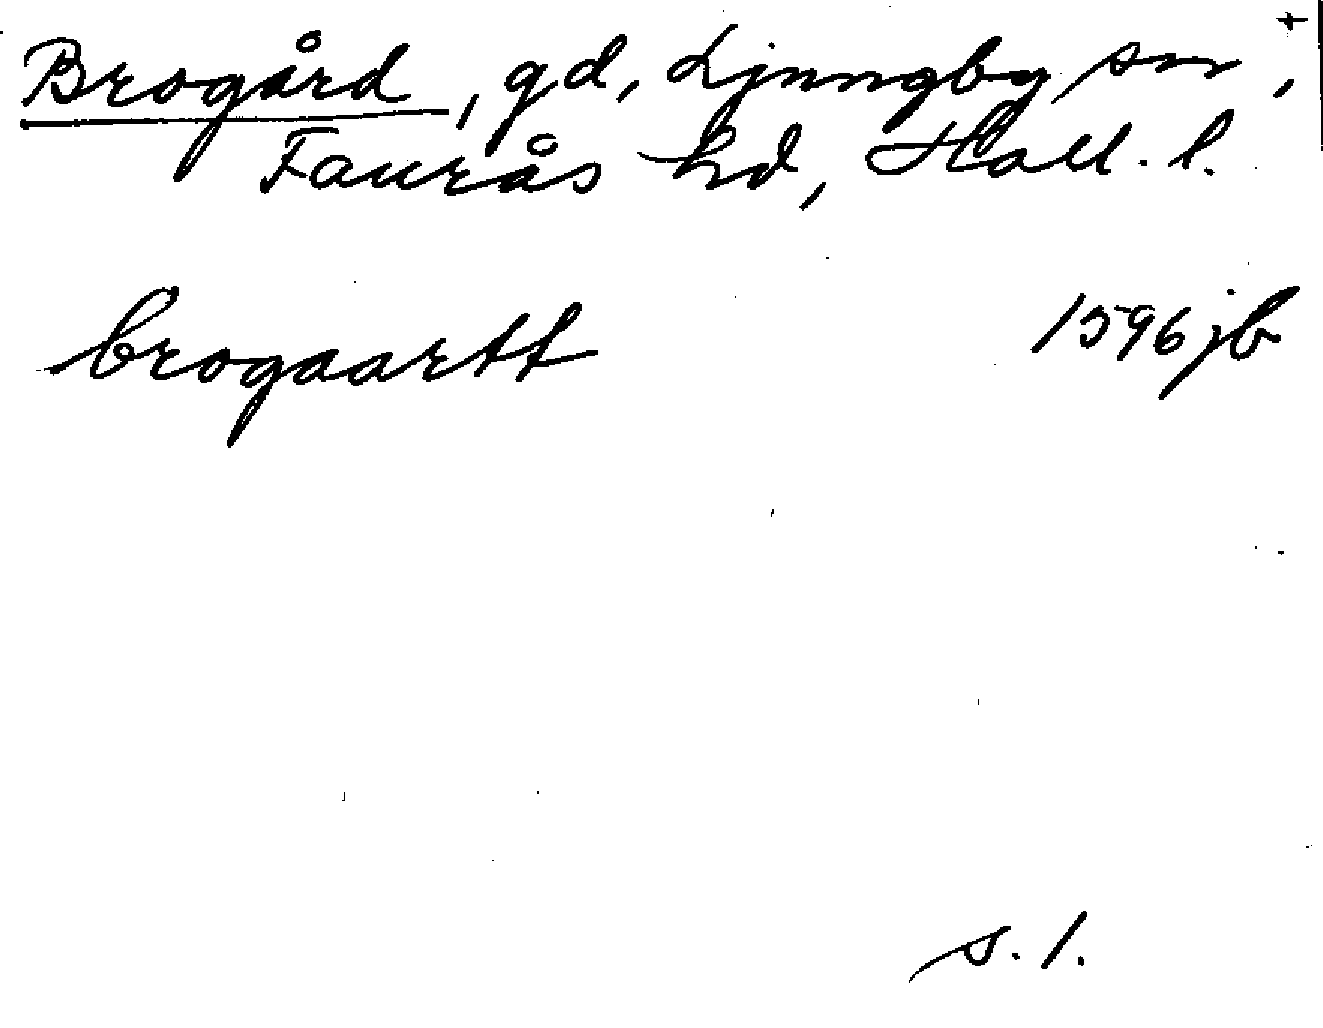 Brogård, gd, Ljungby sn,
Faurås hd, Hall. l.
brogaartt 1596 jb
s. 1.